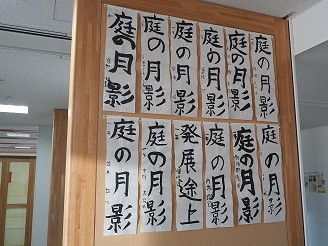 庭の月影
庭の月影
庭の月影
庭の月影
庭の月影
庭の月影
庭の月影
庭の月影
発展途上
庭の月影
庭の月影
庭の月影